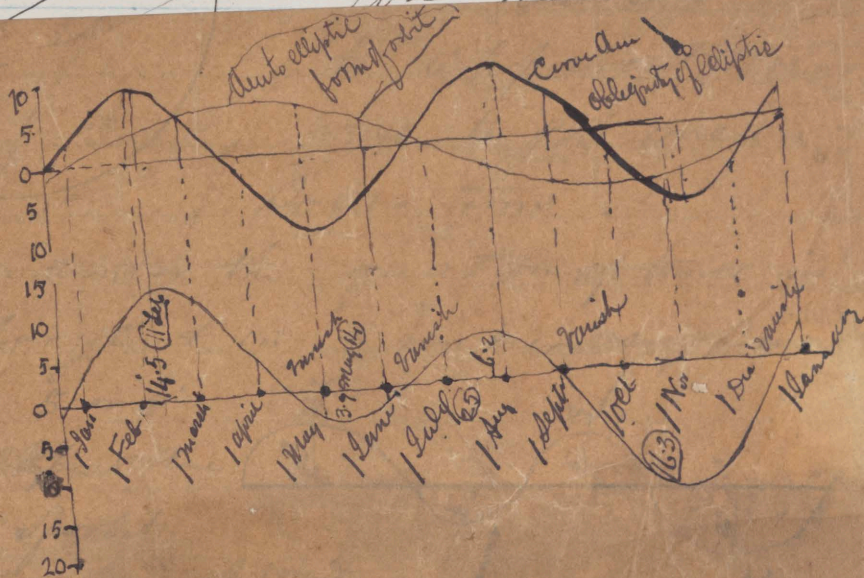 due to elliptic
form of orbit
Curve due
obliquity of ecliptic
10
5
0
5
10
15
10
5
0
5
10
15
20
1 Jan
1 Feb
14.5 11 Feb
1 March
1 April
1 May
3.9 May 14
1 June
Vanish
1 July
25
6.2
1 Aug
1 Sept
Vanish
1 Oct
16.3
1 Nov
1 Dec
Vanish
1 January